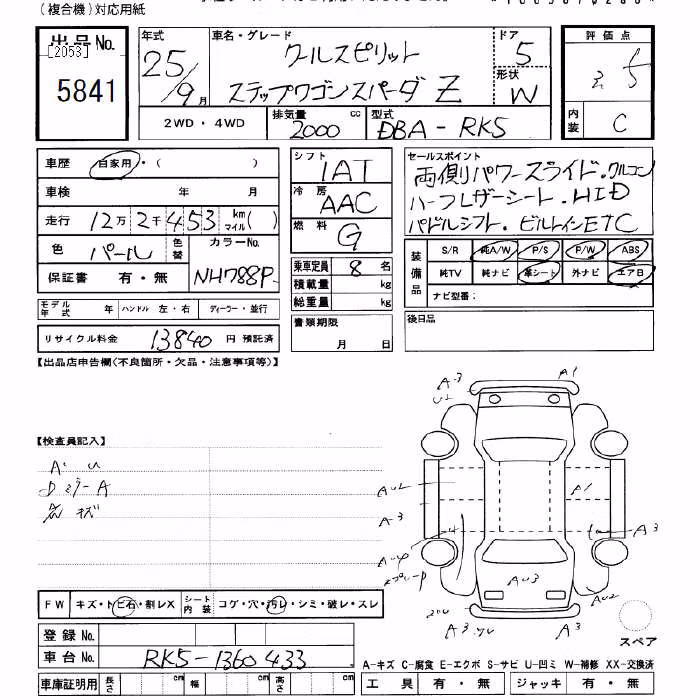 (複合機)対応用紙
出品No.
[2053]
5841
年式
25/9月
車名・グレード
クールスピリット
ステップワゴンスパーダ Z
ドア
5
形状
W
評価点
内装
C
2WD・4WD
排気量
2000 cc
型式
DBA-RK5
車歴
自家用・( )
車検 年 月
走行 12万2千453 km マイル( )
色 パール 色替
カラーNo.
NH788P
保証書 有・無
モデル年式 年 ハンドル 左・右 ディーラー・並行
リサイクル料金 13840 円 預託済
シフト
IAT
冷房
AAC
燃料
G
乗車定員 8 名
積載量 kg
総重量 kg
書類期限
月 日
セールスポイント
両側パワースライド.クルコン
ハーフレザーシート.HID
パドルシフト.ビルトインETC
装備品
S/R 純A/W P/S P/W ABS
純TV 純ナビ 革シート 外ナビ エアB
ナビ型番:
後日品
【出品店申告欄(不良箇所・欠品・注意事項等)】
【検査員記入】
A・U
Dミラー A
キズ
A3
U2
A1
AU2
A1
A3
A3
AU4
AU3
AU2
A3
A3
スペア
FW キズ・トビ石・割レX
シート内装 コゲ・穴・汚レ・シミ・破レ・スレ
登録No.
車台No. RK5-1360433
車庫証明用 長さ cm 幅 cm 高さ cm
A-キズ C-腐食 E-エクボ S-サビ U-凹ミ W-補修 XX-交換済
工具 有・無 ジャッキ 有・無